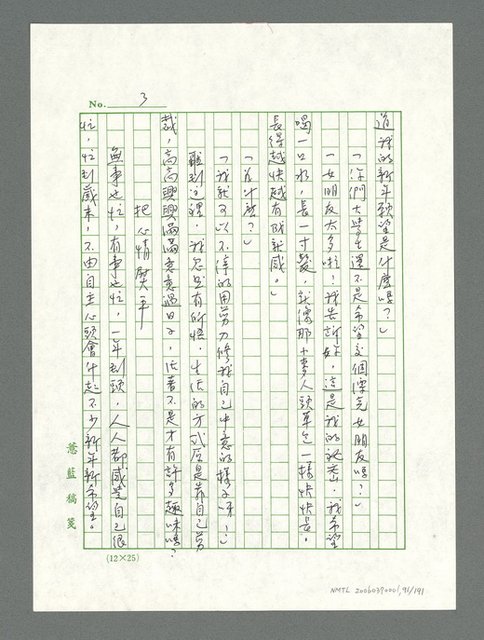 No. 3
道我的新年願望是什麼嗎？」
「你們大學生還不是希望交個漂亮女朋友嗎？」
「女朋友太多啦！我告訴妳，這是我的秘密，我希望
喝一口水，長一寸髮，就像那小麥人頭草包一樣快快長。
長得越快越有成就感。」
「為什麼？」
「我就可以不停的用剪刀修我自己中意的樣子呀！」
聽到這裡，我忽然有所悟，生活的方式应是靠自己剪
裁，高高興興滿滿意意過日子，活著不是才有許多趣味嗎？
把心情熨平
無事也忙，有事也忙，一年到頭，人人都感覺自己很
忙，忙到歲末，不由自主心頭會升起不少新年新希望。
薏藍稿箋
(12×25)
NMTL 20060390001,91/191